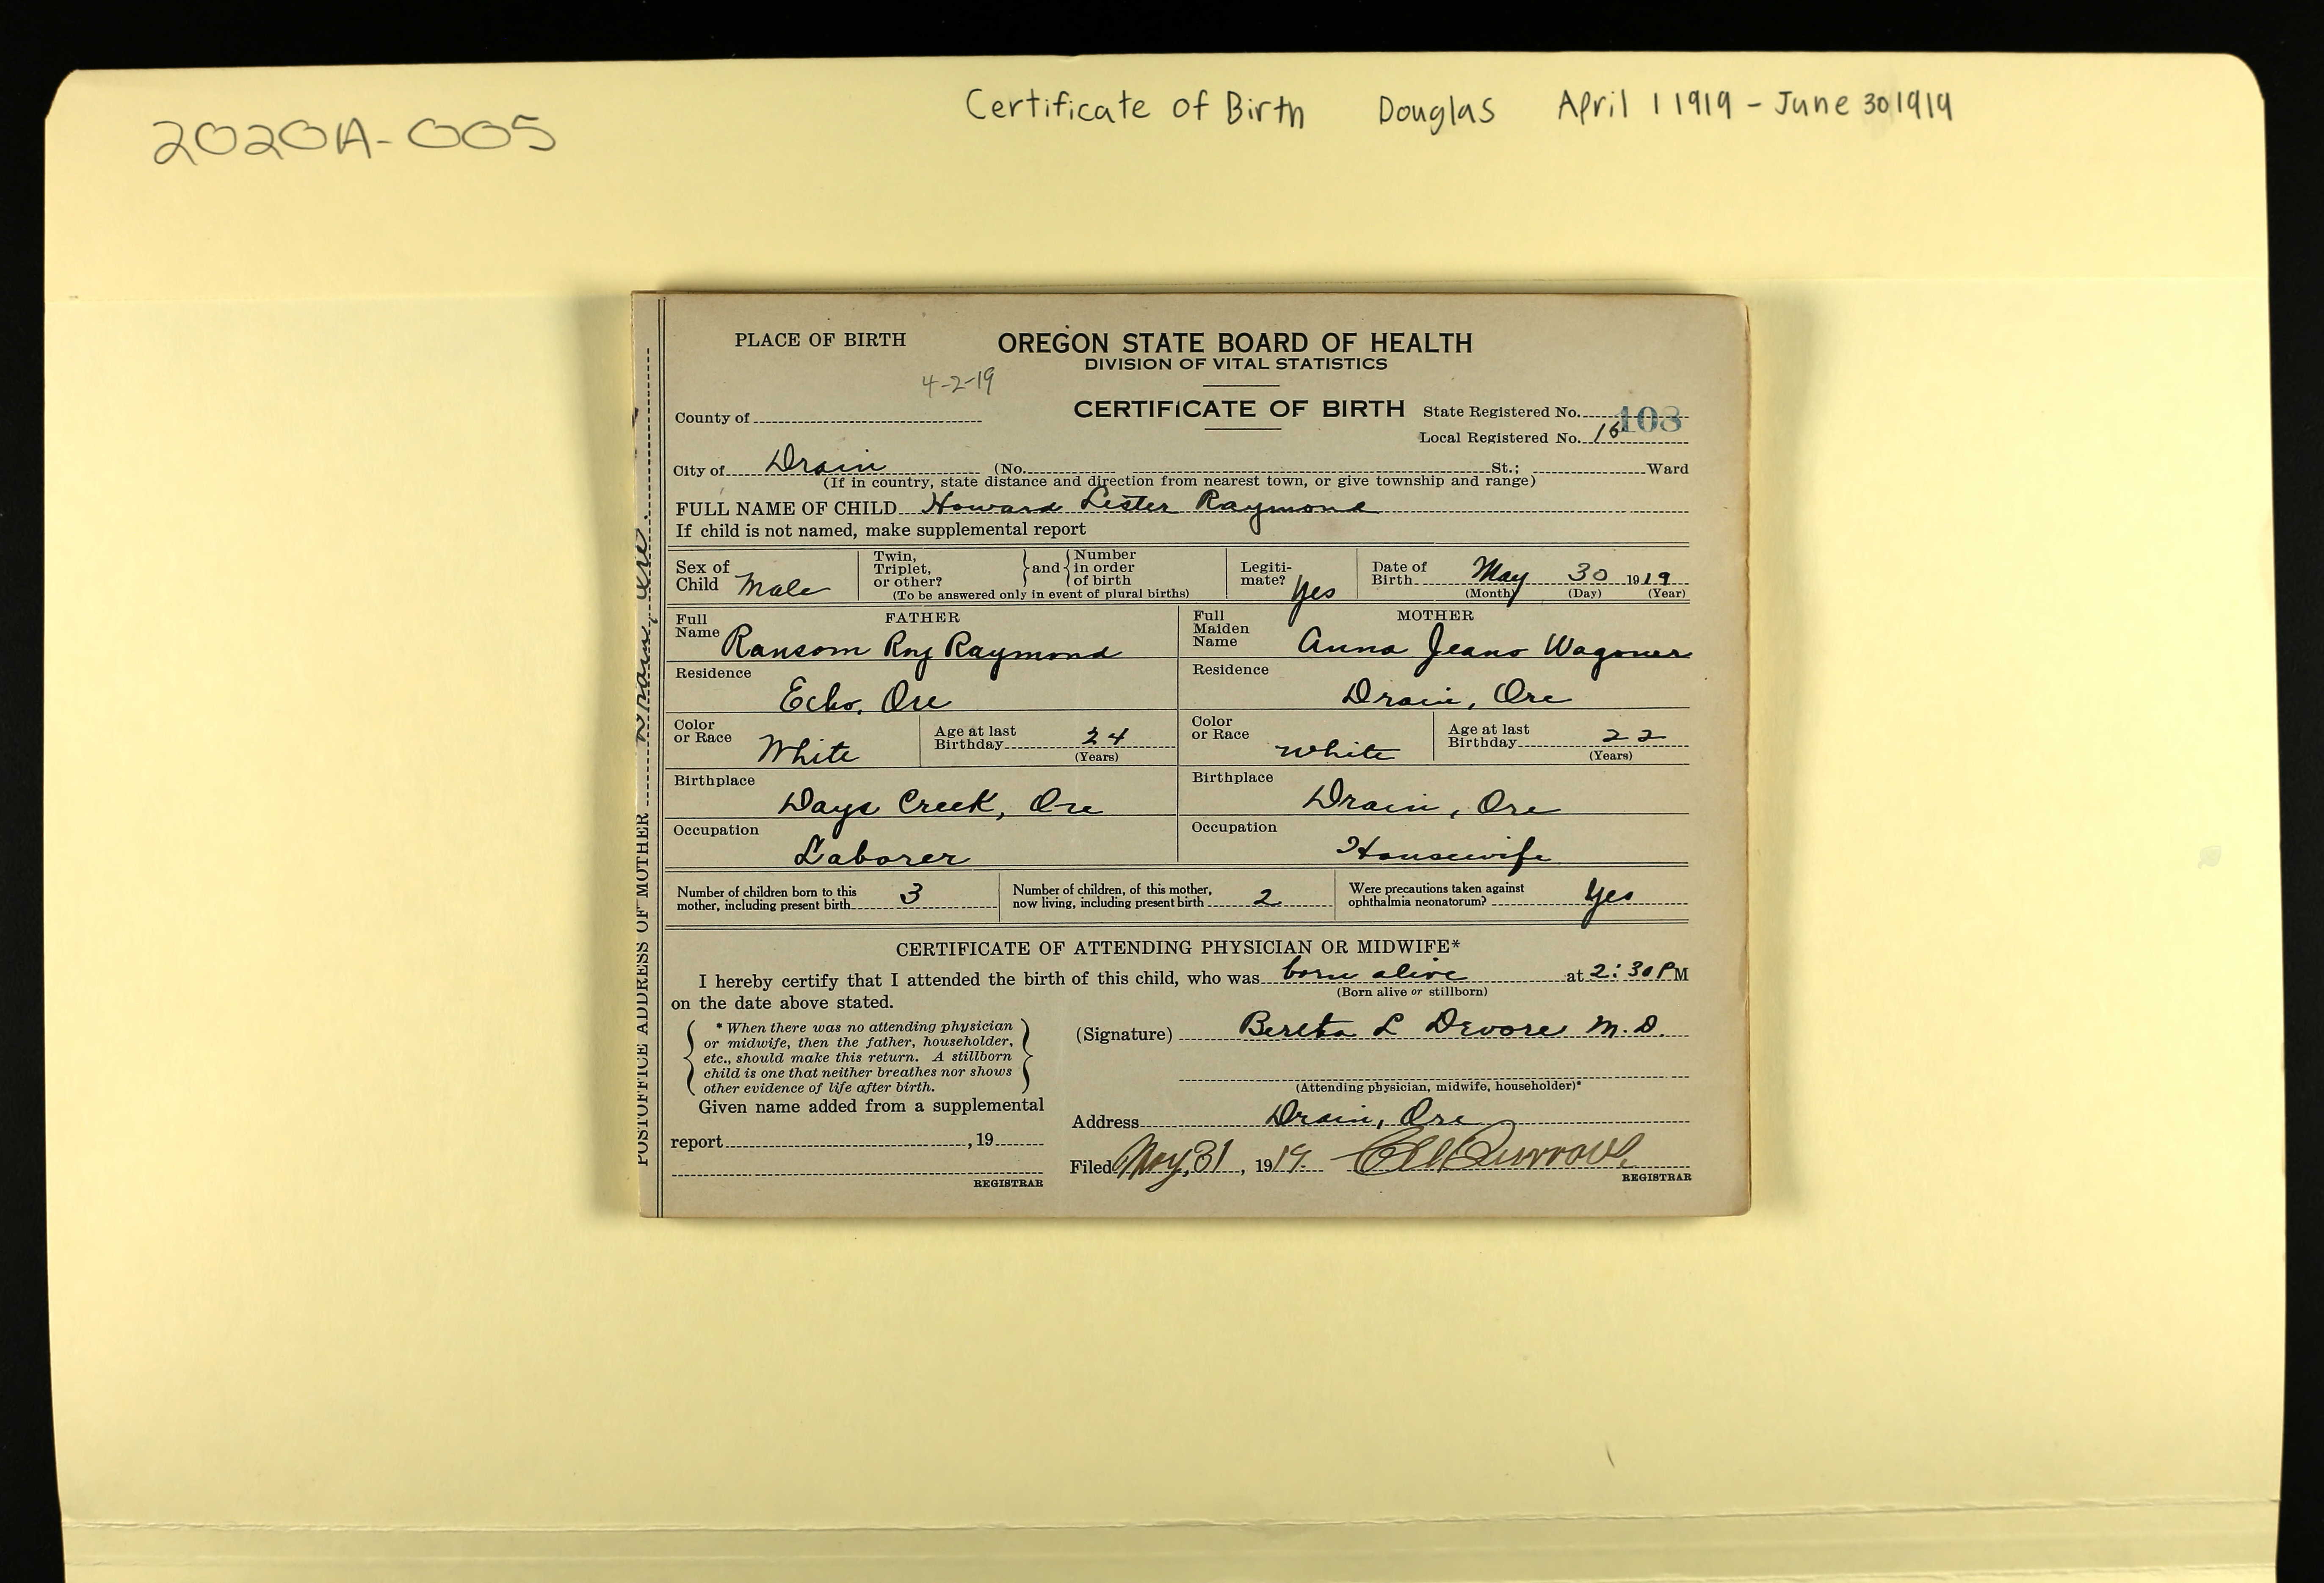 2020A-005
Certificate of Birth Douglas April 1 1919 - June 30 1919
PLACE OF BIRTH
OREGON STATE BOARD OF HEALTH
DIVISION OF VITAL STATISTICS
4-2-19
County of
CERTIFICATE OF BIRTH
State Registered No. 108
Local Registered No. 16
City of Drain (No. St.; Ward
(If in country, state distance and direction from nearest town, or give township and range)
FULL NAME OF CHILD Howard Lester Raymond
If child is not named, make supplemental report
Sex of Child Male
Twin, Triplet, or other? and Number in order of birth
(To be answered only in event of plural births)
Legiti-mate? Yes
Date of Birth May 30 1919
(Month) (Day) (Year)
FATHER
Full Name Ransom Roy Raymond
MOTHER
Full Maiden Name Anna Jeano Wagoner
Residence Echo, Ore
Residence Drain, Ore
Color or Race White
Age at last Birthday 24
(Years)
Color or Race White
Age at last Birthday 22
(Years)
Birthplace Days Creek, Ore
Birthplace Drain, Ore
Occupation Laborer
Occupation Housewife
Number of children born to this mother, including present birth 3
Number of children, of this mother, now living, including present birth 2
Were precautions taken against ophthalmia neonatorum? Yes
CERTIFICATE OF ATTENDING PHYSICIAN OR MIDWIFE*
I hereby certify that I attended the birth of this child, who was born alive at 2:30 P M
(Born alive or stillborn)
on the date above stated.
* When there was no attending physician
or midwife, then the father, householder,
etc., should make this return. A stillborn
child is one that neither breathes nor shows
other evidence of life after birth.
(Signature) Bertha L Devore M.D.
(Attending physician, midwife, householder)*
Given name added from a supplemental
report , 19
REGISTRAR
Address Drain, Ore
Filed May, 31, 1919.
REGISTRAR
POSTOFFICE ADDRESS OF MOTHER Drain, Ore.